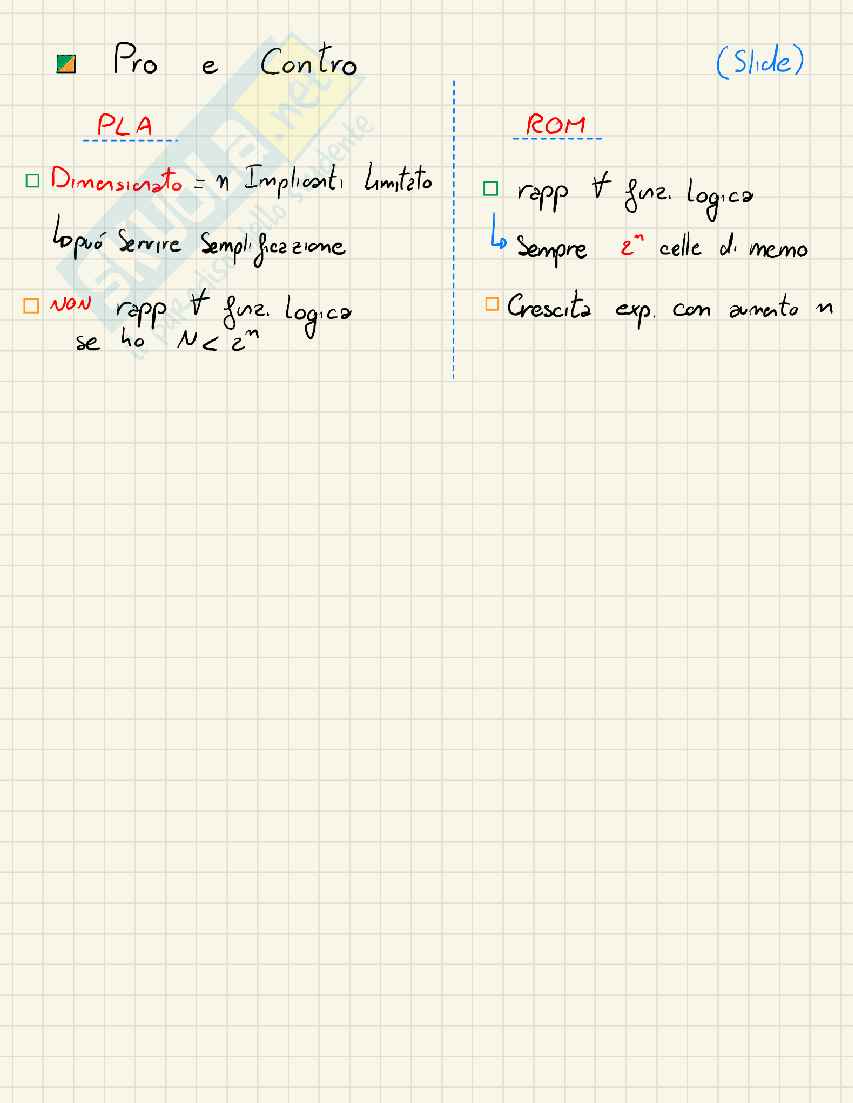 Pro e Contro
(Slide)
PLA
Dimensionato = n Implicanti limitato
può Servire Semplificazione
NON rapp ∀ funz. logica
se ho N < 2ⁿ
ROM
rapp ∀ funz. logica
Sempre 2ⁿ celle di memo
Crescita exp. con aumento n
SKUOLA.net